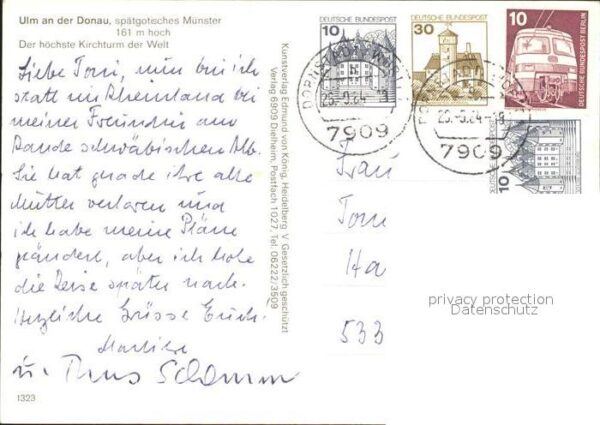 Ulm an der Donau, spätgotisches Münster
161 m hoch
Der höchste Kirchturm der Welt
Liebe Toni, nun bin ich
statt im Rheinland bei
meiner Freundin am
Rande schwäbischen Alb.
Sie hat gerade ihre alte
Mutter verloren und
ich habe meine Pläne
geändert, aber ich hole
die Reise später nach.
Herzliche Grüsse Euch.
u.
1323
Kunstverlag Edmund von König, Heidelberg V Gesetzlich geschützt
Verlag 6909 Dielheim, Postfach 1027, Tel. 06222/3509
10 DEUTSCHE BUNDESPOST
30 DEUTSCHE BUNDESPOST
10 DEUTSCHE BUNDESPOST BERLIN
10 DEUTSCHE BUNDESPOST
7909
7909
Frau
Toni
Ha
533
privacy protection
Datenschutz